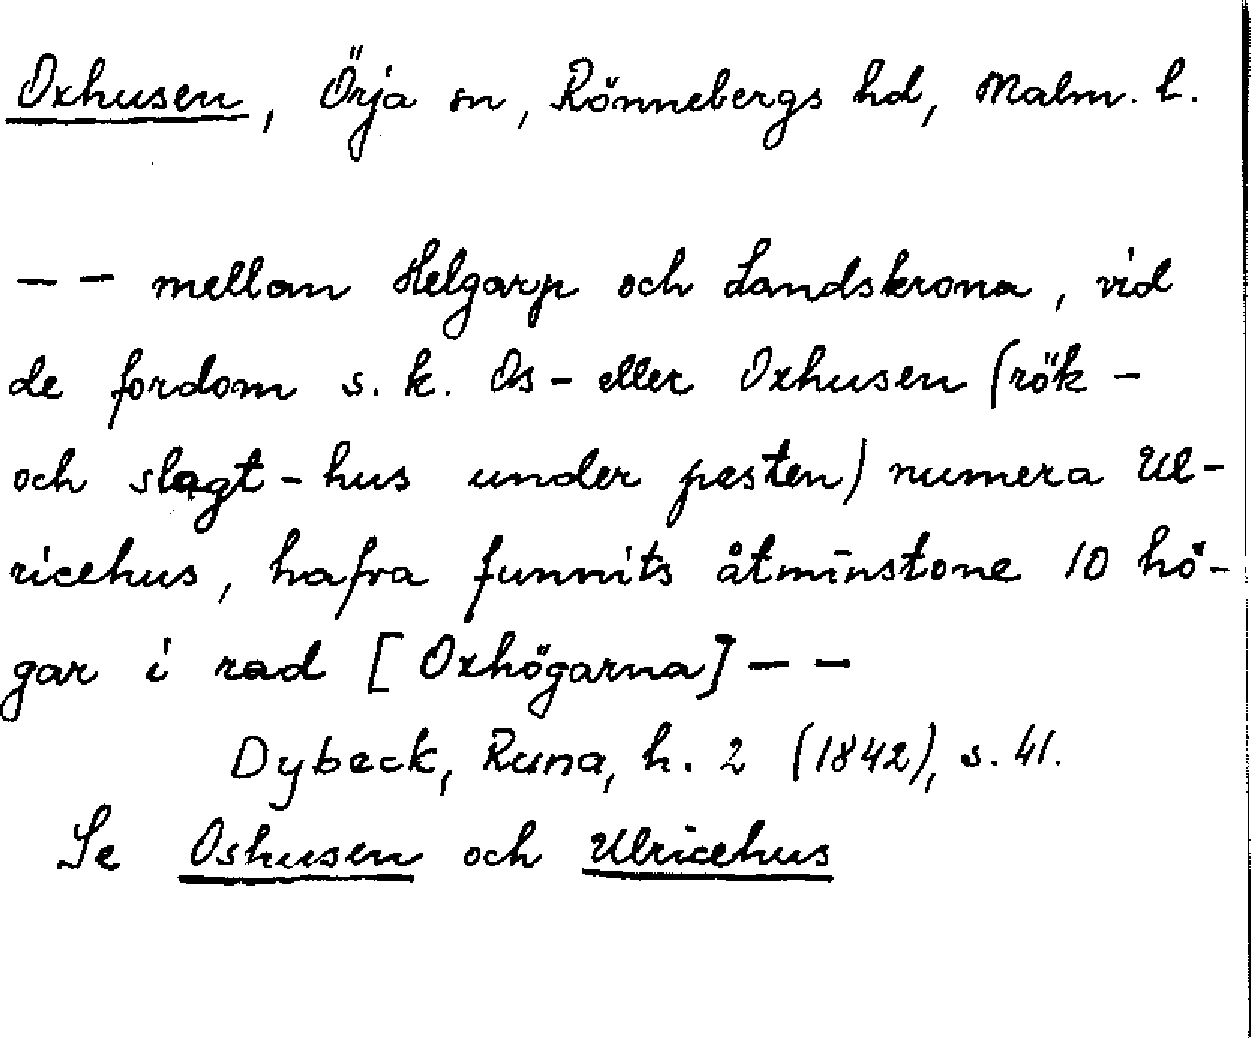 Oxhusen, Örja sn, Rönnebergs hd, Malm. l.
-- mellan Helgarp och Landskrona, vid
de fordom s. k. Os- eller Oxhusen (rök-
och slagt-hus under pesten) numera Ul-
ricehus, hafva funnits åtminstone 10 hö-
gar i rad [Oxhögarna] --
Dybeck, Runa, h. 2 (1842), s. 41.
Se Oshusen och Ulricehus